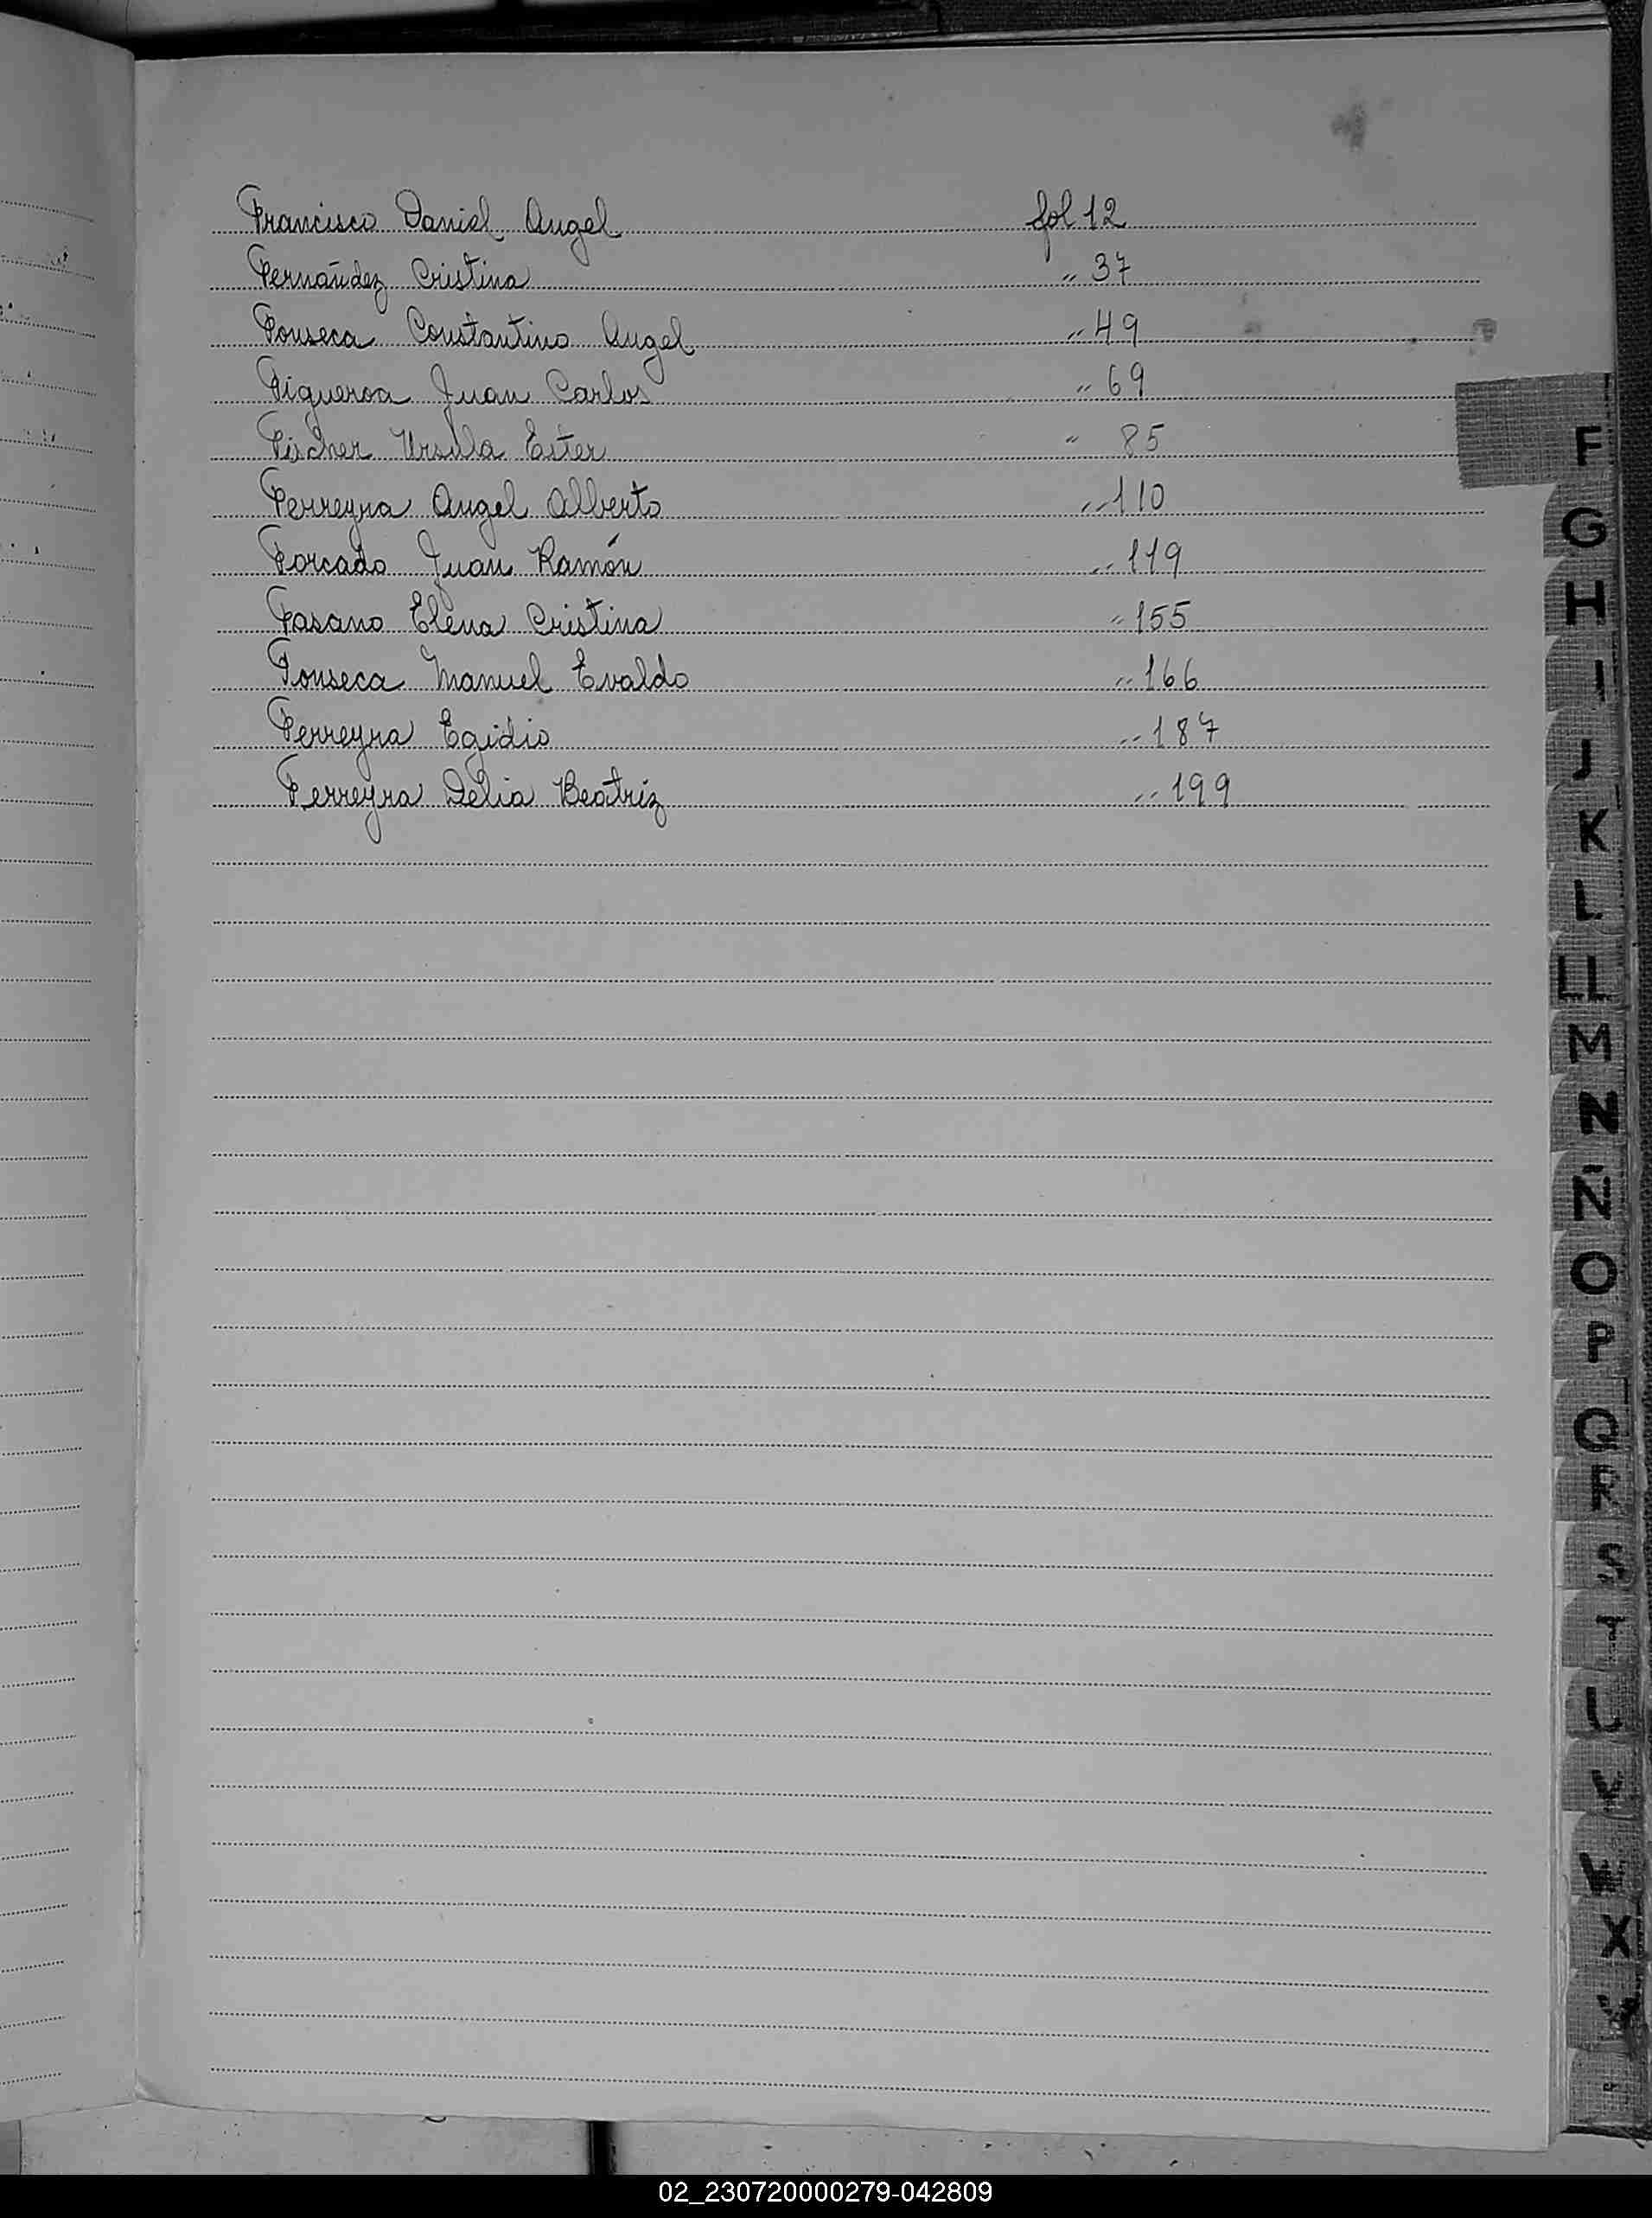 Francisco Daniel Angel fol 12
Fernández Cristina " 37
Fonseca Constantino Angel " 49
Figueroa Juan Carlos " 69
Fischer Ursula Ester " 85
Ferreyra Angel Alberto " 110
Forcado Juan Ramón " 119
Fasano Elena Cristina " 155
Fonseca Manuel Evaldo " 166
Ferreyra Egidio " 187
Ferreyra Delia Beatriz " 199
F
G
H
I
J
K
L
LL
M
N
Ñ
O
P
Q
R
S
T
U
V
W
X
02_230720000279-042809